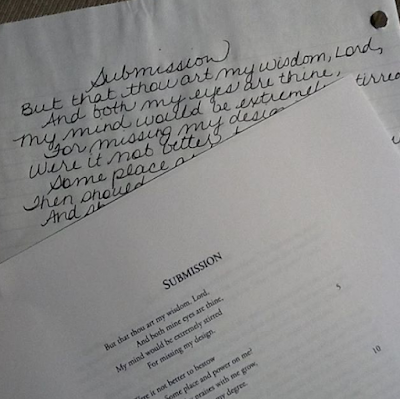 Submission
But that thou art my wisdom, Lord,
And both my eyes are thine,
My mind would be extremely stirred
For missing my design
Were it not better
Some place
Then should
And
SUBMISSION
But that thou art my wisdom, Lord,
And both mine eyes are thine,
My mind would be extremely stirred
For missing my design.
5
Were it not better to bestow
Some place and power on me?
praises with me grow,
my degree.
10